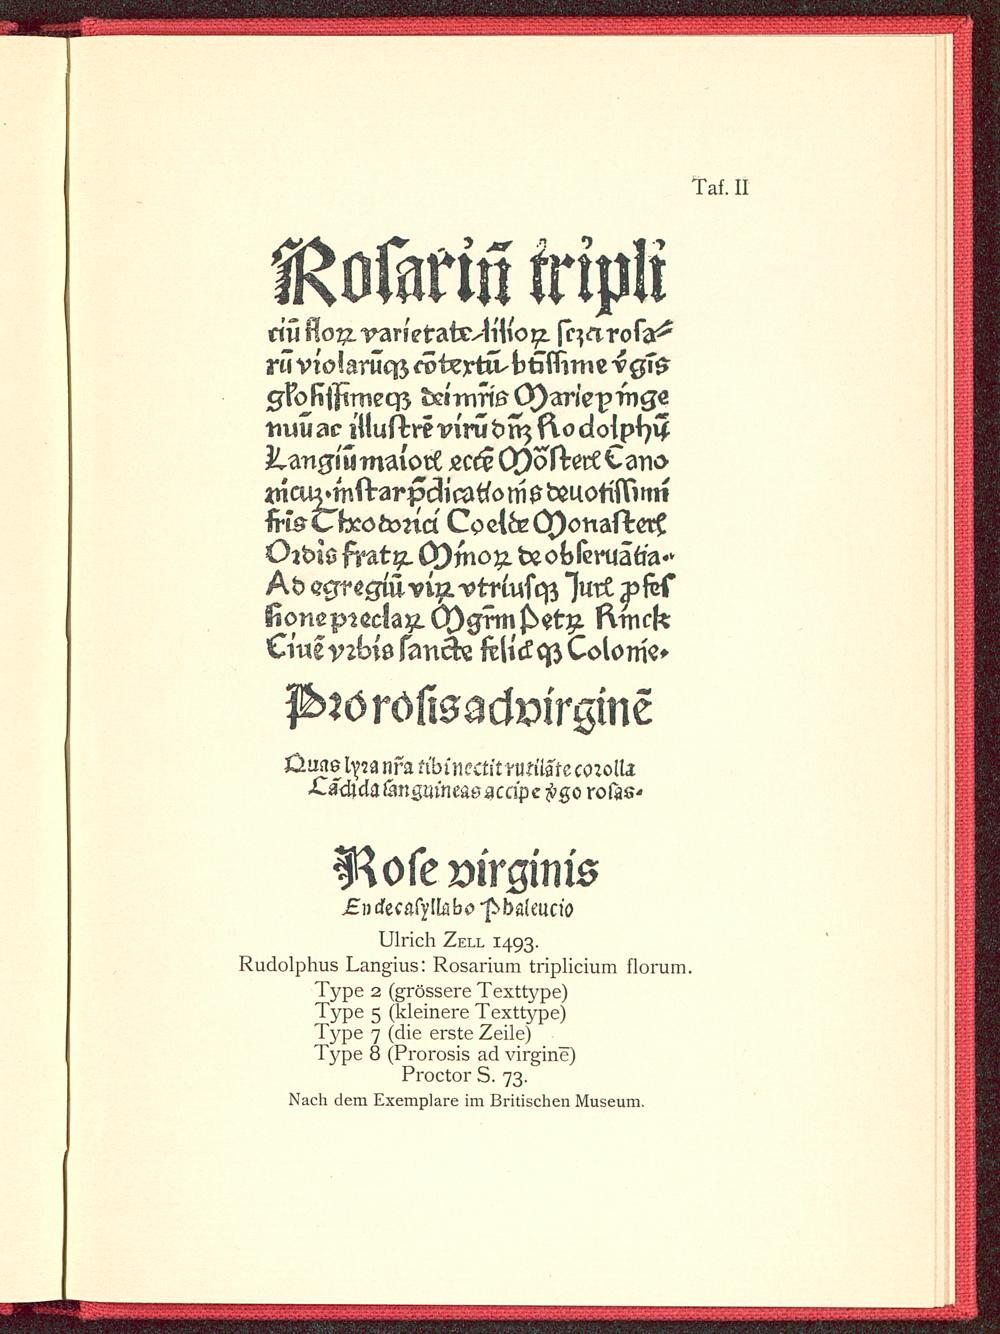 Taf. II
Rosariū tripli
ciū floꝝ varietate lilioꝝ scꝫ ⁊ rosa⸗
rū violarūqꝫ cōtextū btīssime v̄gīs
glosissimeqꝫ dei mr̄is Marie ꝑ inge
nuū ac illustrē virū dn̄ꝫ Rodolphū
Langiū maior eccē Mōster Cano
nicuꝫ instar p̄dicatiōis deuotissimi
fr̄is Theodorici Coelde Monaster
Ordīs fratꝝ Minoꝝ de obseruātia..
Ad egregiū viꝝ vtriusqꝫ Iur ꝓfes
sione preclaꝝ Mgr̄m Petꝝ Rinck
Ciuē vrbis sancte felicqꝫ Colonie.
Prorosis ad virginē
Quas lyra nr̄a tibi nectit rutilāte corolla
Cādida sanguineas accipe v̄go rosas.
Rose virginis
Endecasyllabo Phaleucio
Ulrich ZELL 1493.
Rudolphus Langius: Rosarium triplicium florum.
Type 2 (grössere Texttype)
Type 5 (kleinere Texttype)
Type 7 (die erste Zeile)
Type 8 (Prorosis ad virginē)
Proctor S. 73.
Nach dem Exemplare im Britischen Museum.